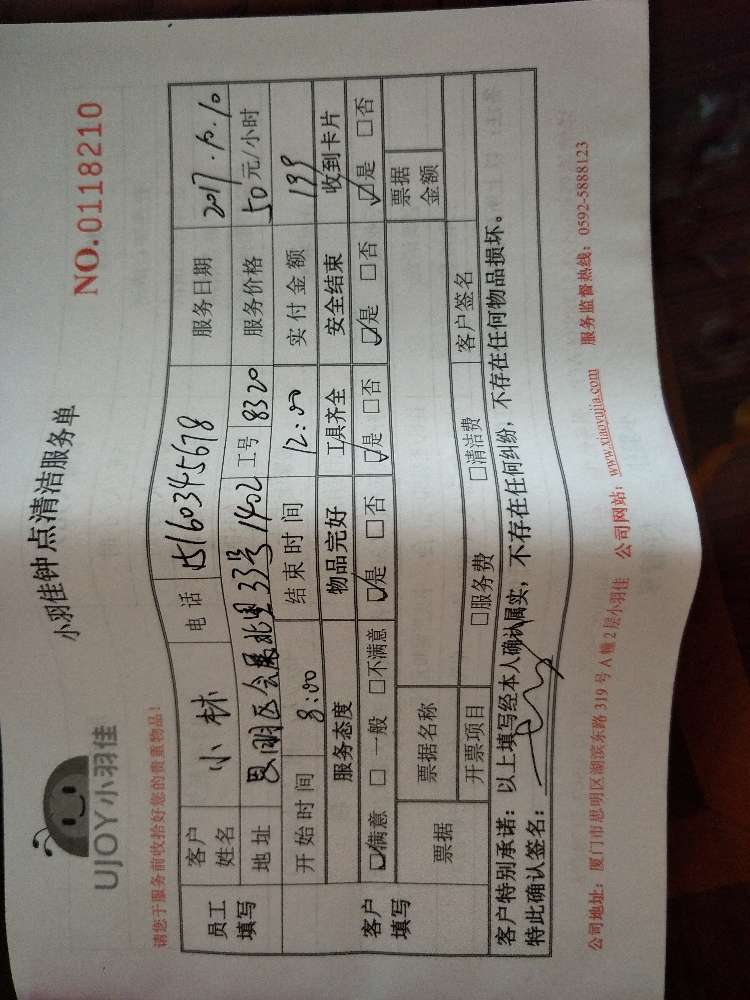 小羽佳钟点清洁服务单
UJOY小羽佳
NO.0118210
请您于服务前收拾好您的贵重物品!
员工填写 客户姓名 小林 电话 15160345678 服务日期 2017.10.10
地址 思明区会展北里33号1402 工号 8320 服务价格 50元/小时
开始时间 8:00 结束时间 12:00 实付金额 199
客户填写 服务态度 物品完好 工具齐全 安全结束 收到卡片
☑满意 □一般 □不满意 ☑是 □否 ☑是 □否 ☑是 □否 ☑是 □否
票据 票据名称 票据金额
开票项目 □服务费 □清洁费 客户签名
客户特别承诺：以上填写经本人确认属实，不存在任何纠纷，不存在任何物品损坏。
特此确认签名：
公司地址：厦门市思明区湖滨东路319号A幢2层小羽佳 公司网站：www.xiaoyujia.com 服务监督热线：0592-5888123